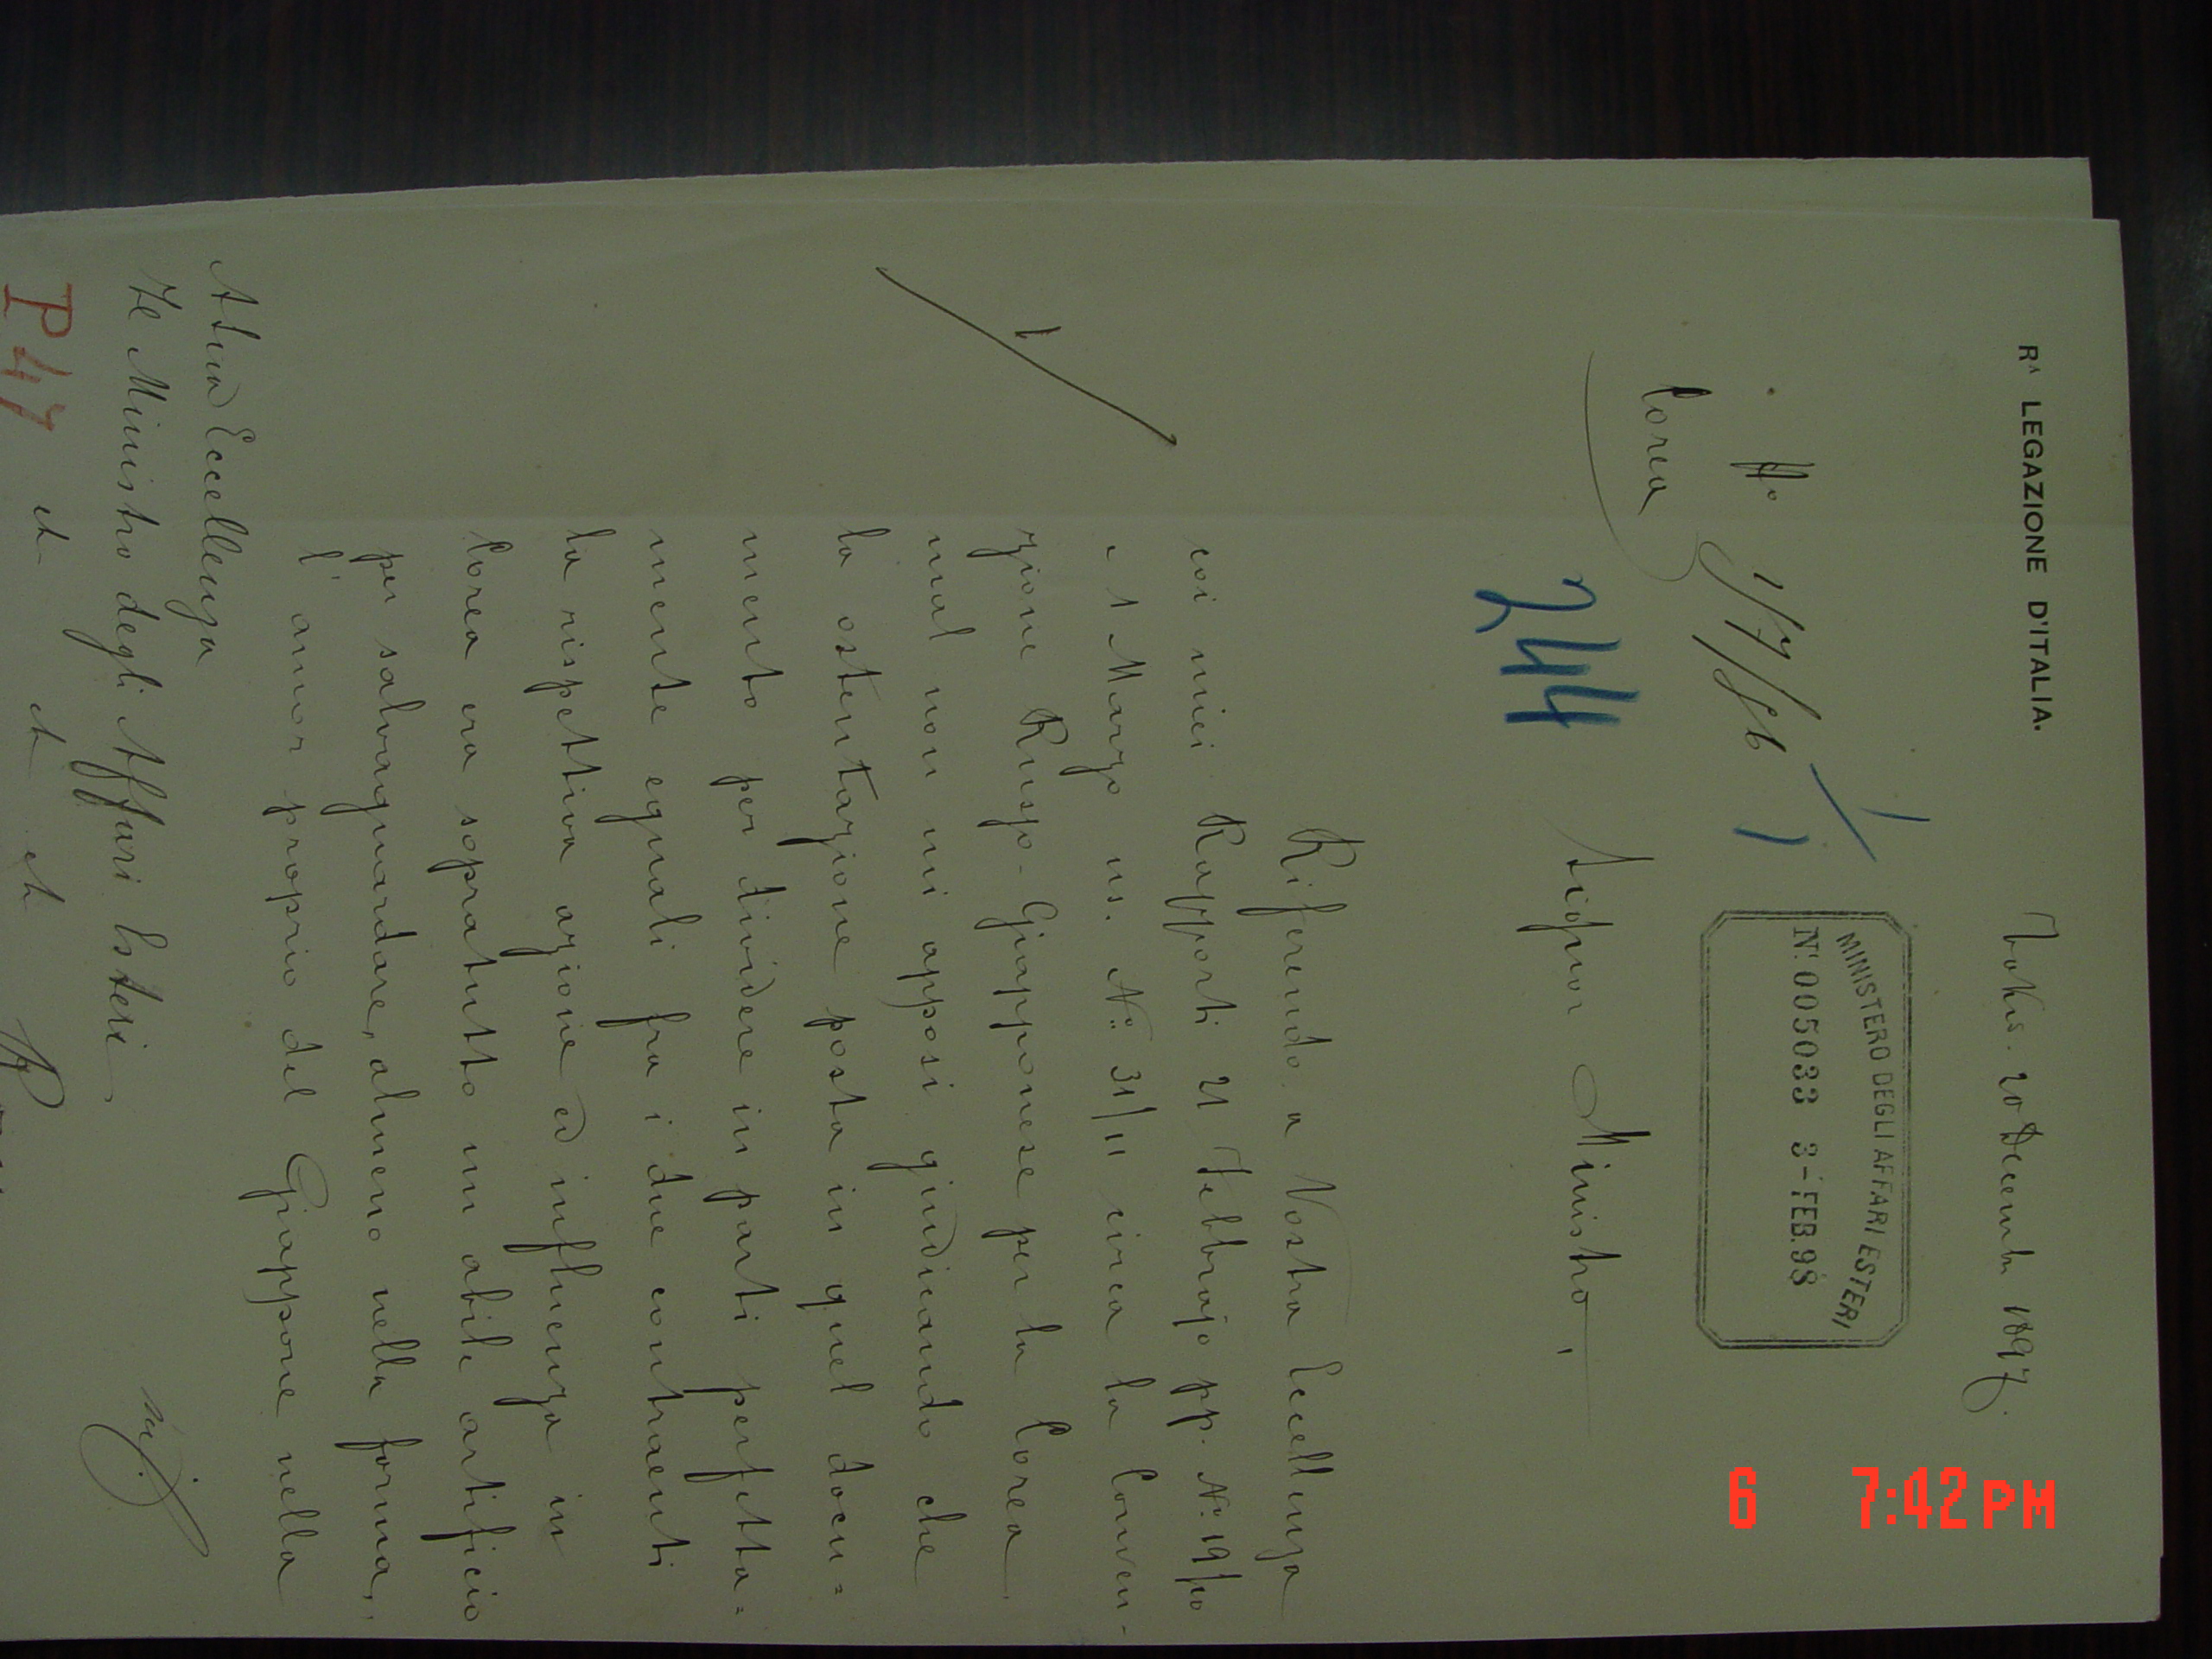 Rᴬ LEGAZIONE D'ITALIA.
Tokio. 20 Decembre 1897.
Nº 177/56
1
MINISTERO DEGLI AFFARI ESTERI
Nº 005033 3-FEB.98
Corea
244
Signor Ministro,
Riferendo a Vostra Eccellenza
coi miei Rapporti 21 Febbrajo pp. Nº 19/10
e 1 Marzo us. Nº 31/11 circa la Conven-
zione Russo-Giapponese per la Corea
1
mal non mi apposi giudicando che
la ostentazione posta in quel docu=
mento per dividere in parti perfetta=
mente eguali fra i due contraenti
la rispettiva azione ed influenza in
Corea era sopratutto un abile artificio
per salvaguardare, almeno nella forma,
l'amor proprio del Giappone nella
A Sua Eccellenza
Il Ministro degli Affari Esteri
et et et
P 47
6 7:42PM